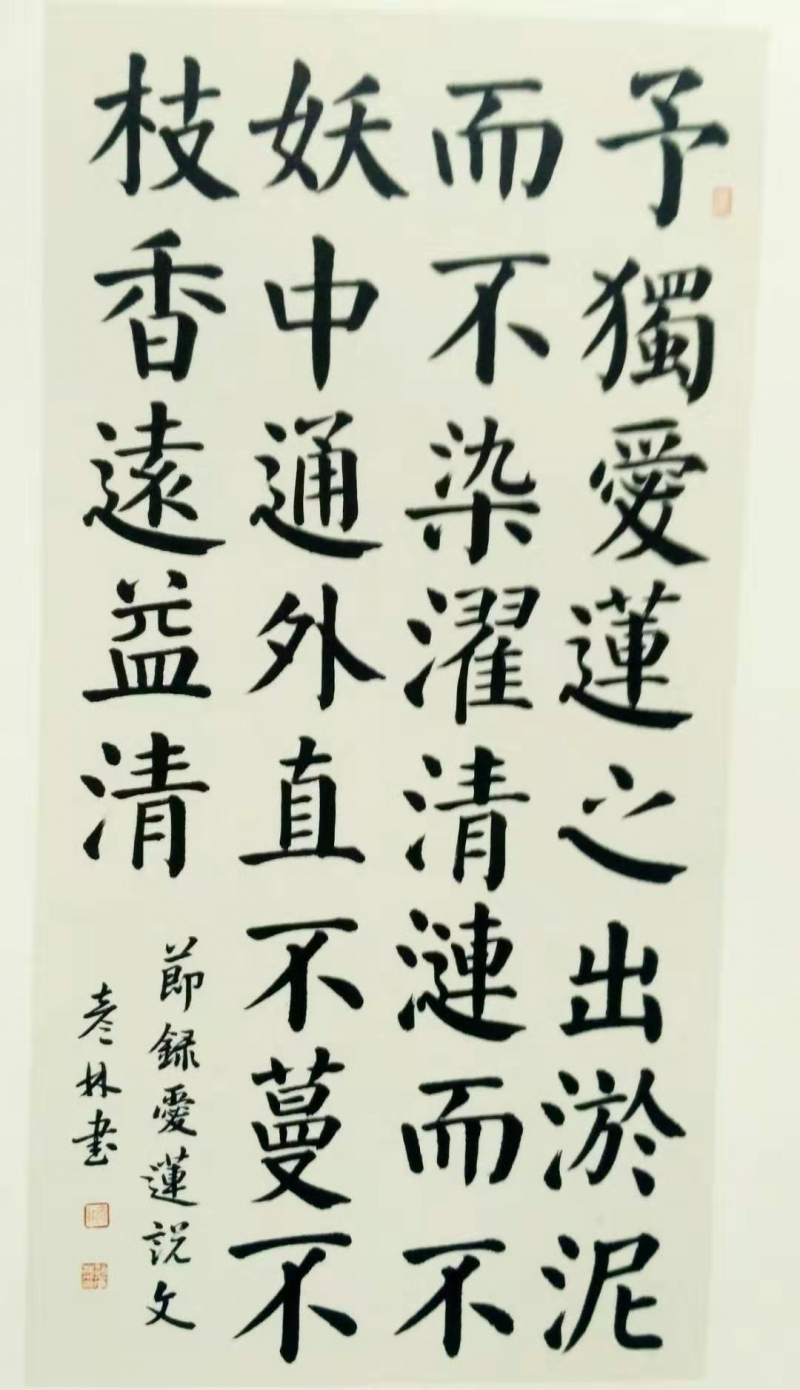 予獨愛蓮之出淤泥
而不染濯清漣而不
妖中通外直不蔓不
枝香遠益清
節録愛蓮説文
林書